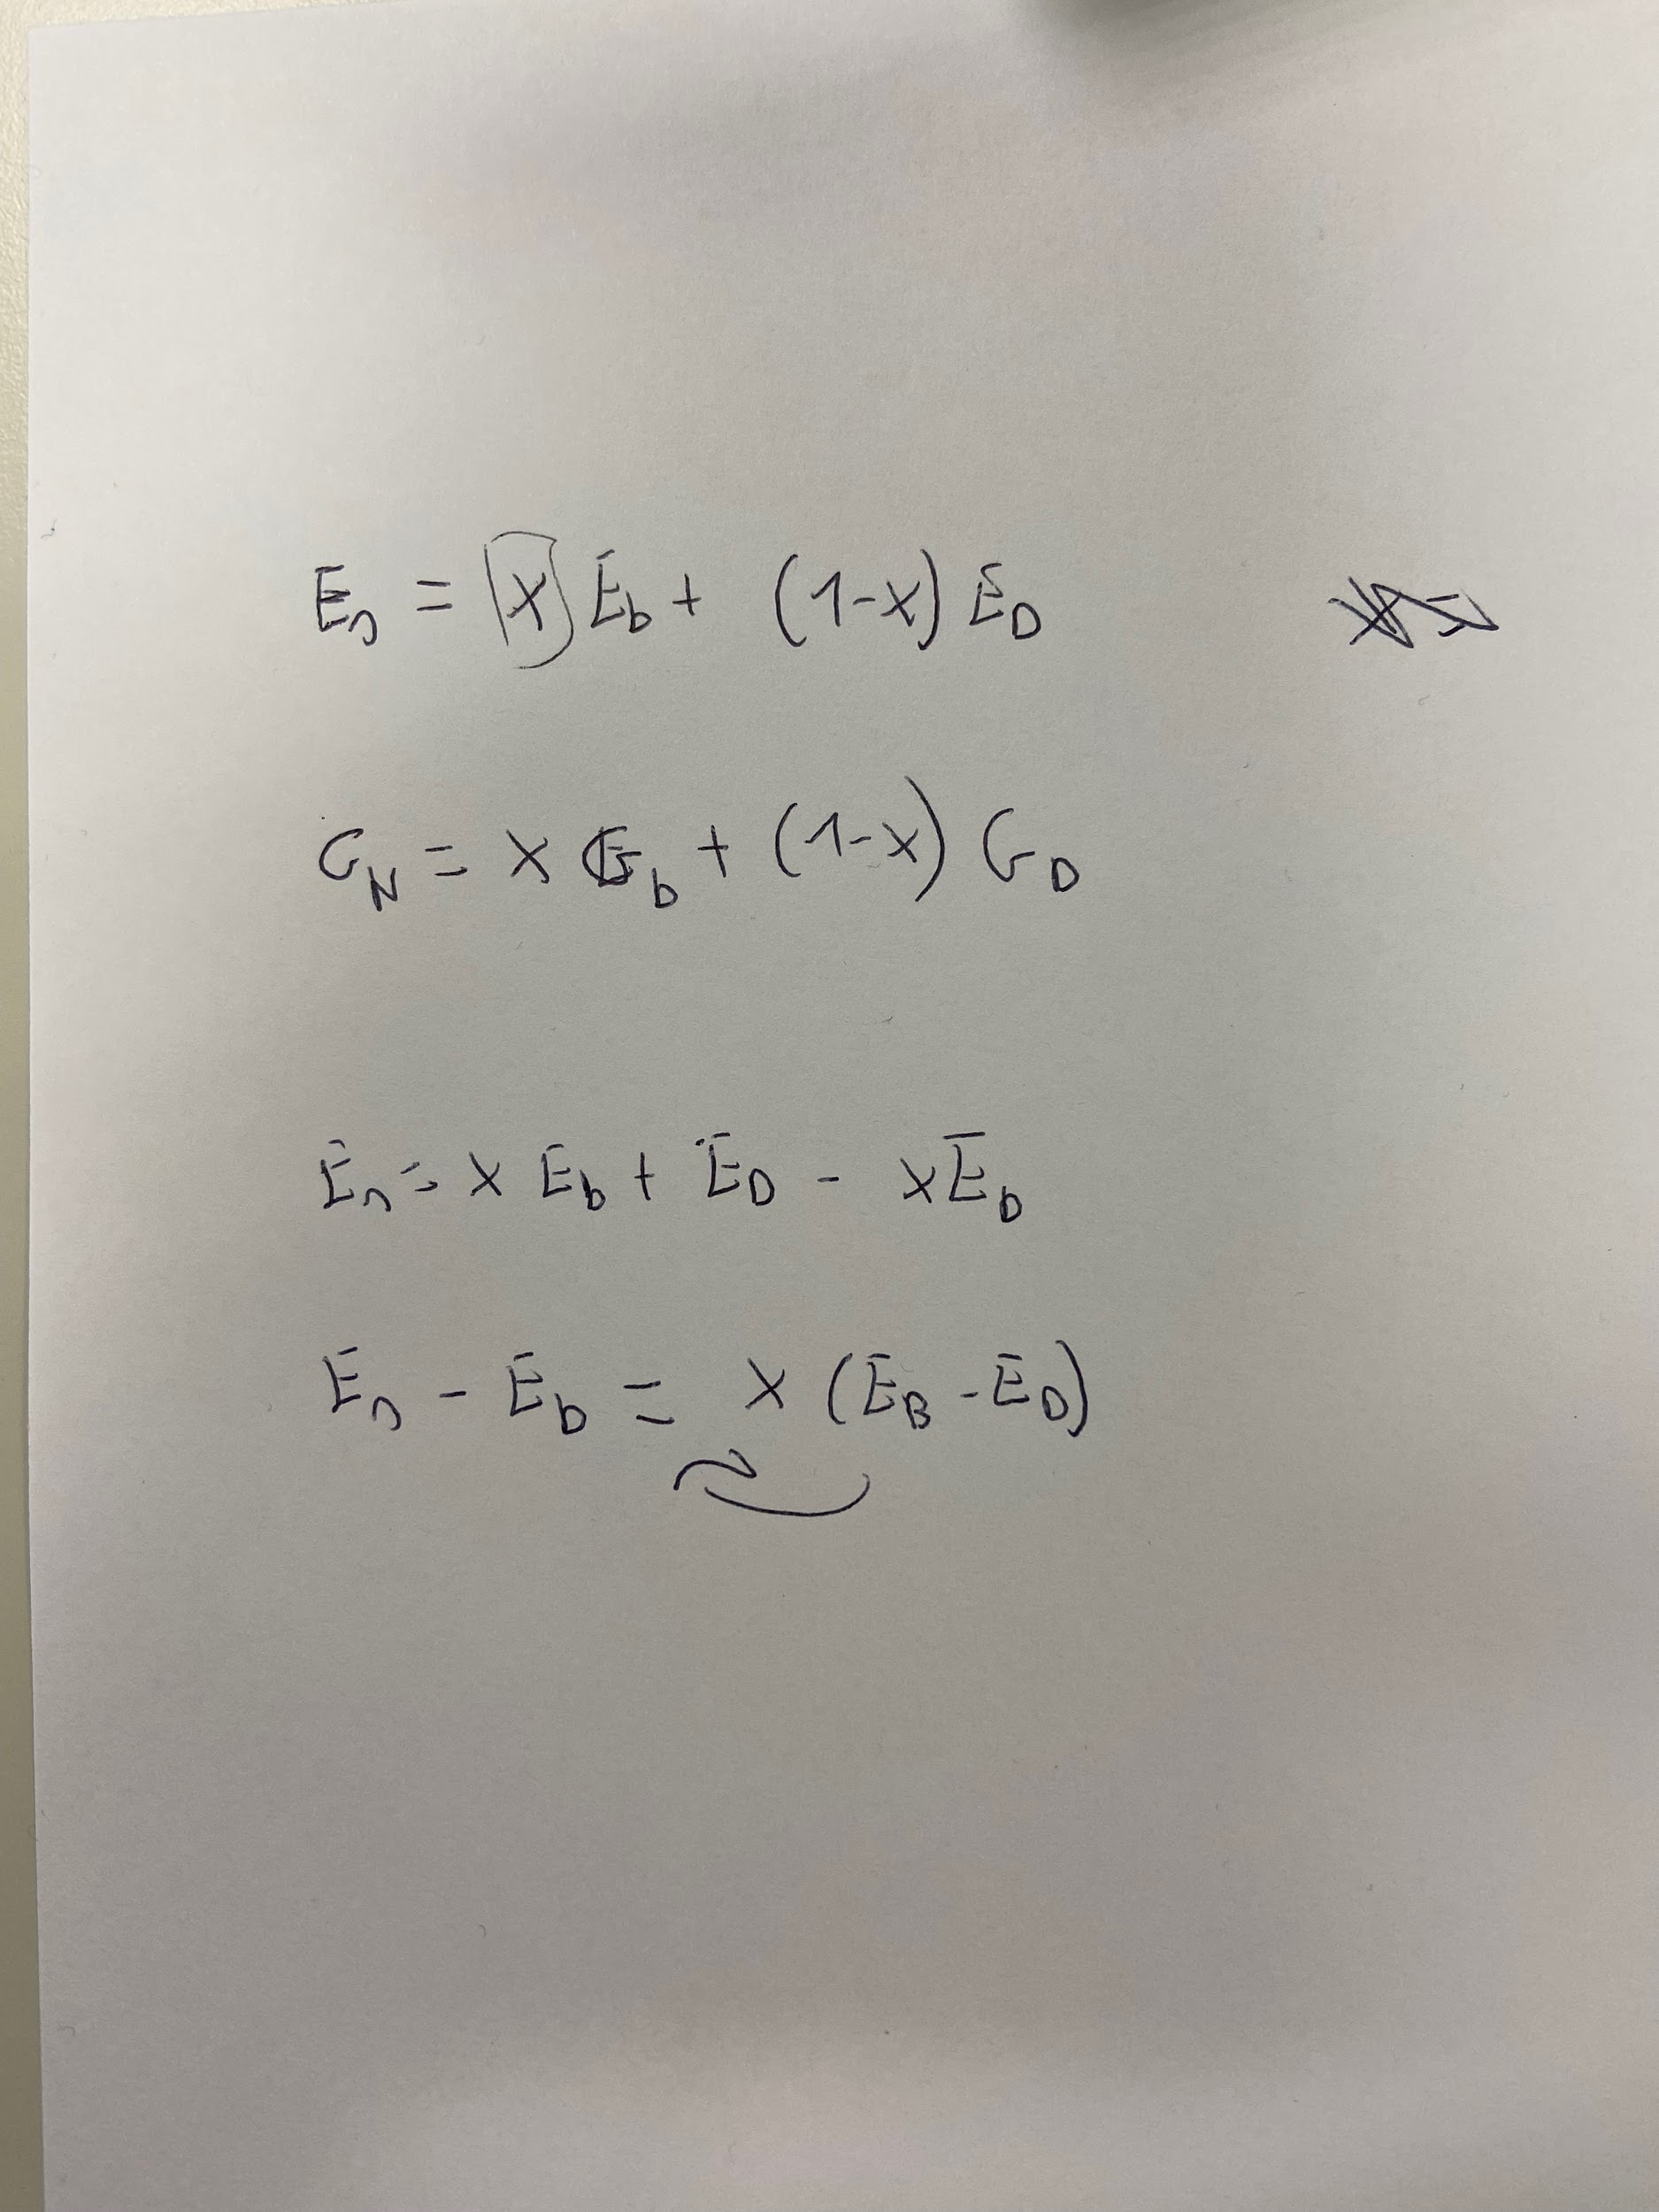 En = x Eb + (1-x) ED
GN = x Gb + (1-x) GD
En = x Eb + ED - xED
En - ED = x (EB - ED)